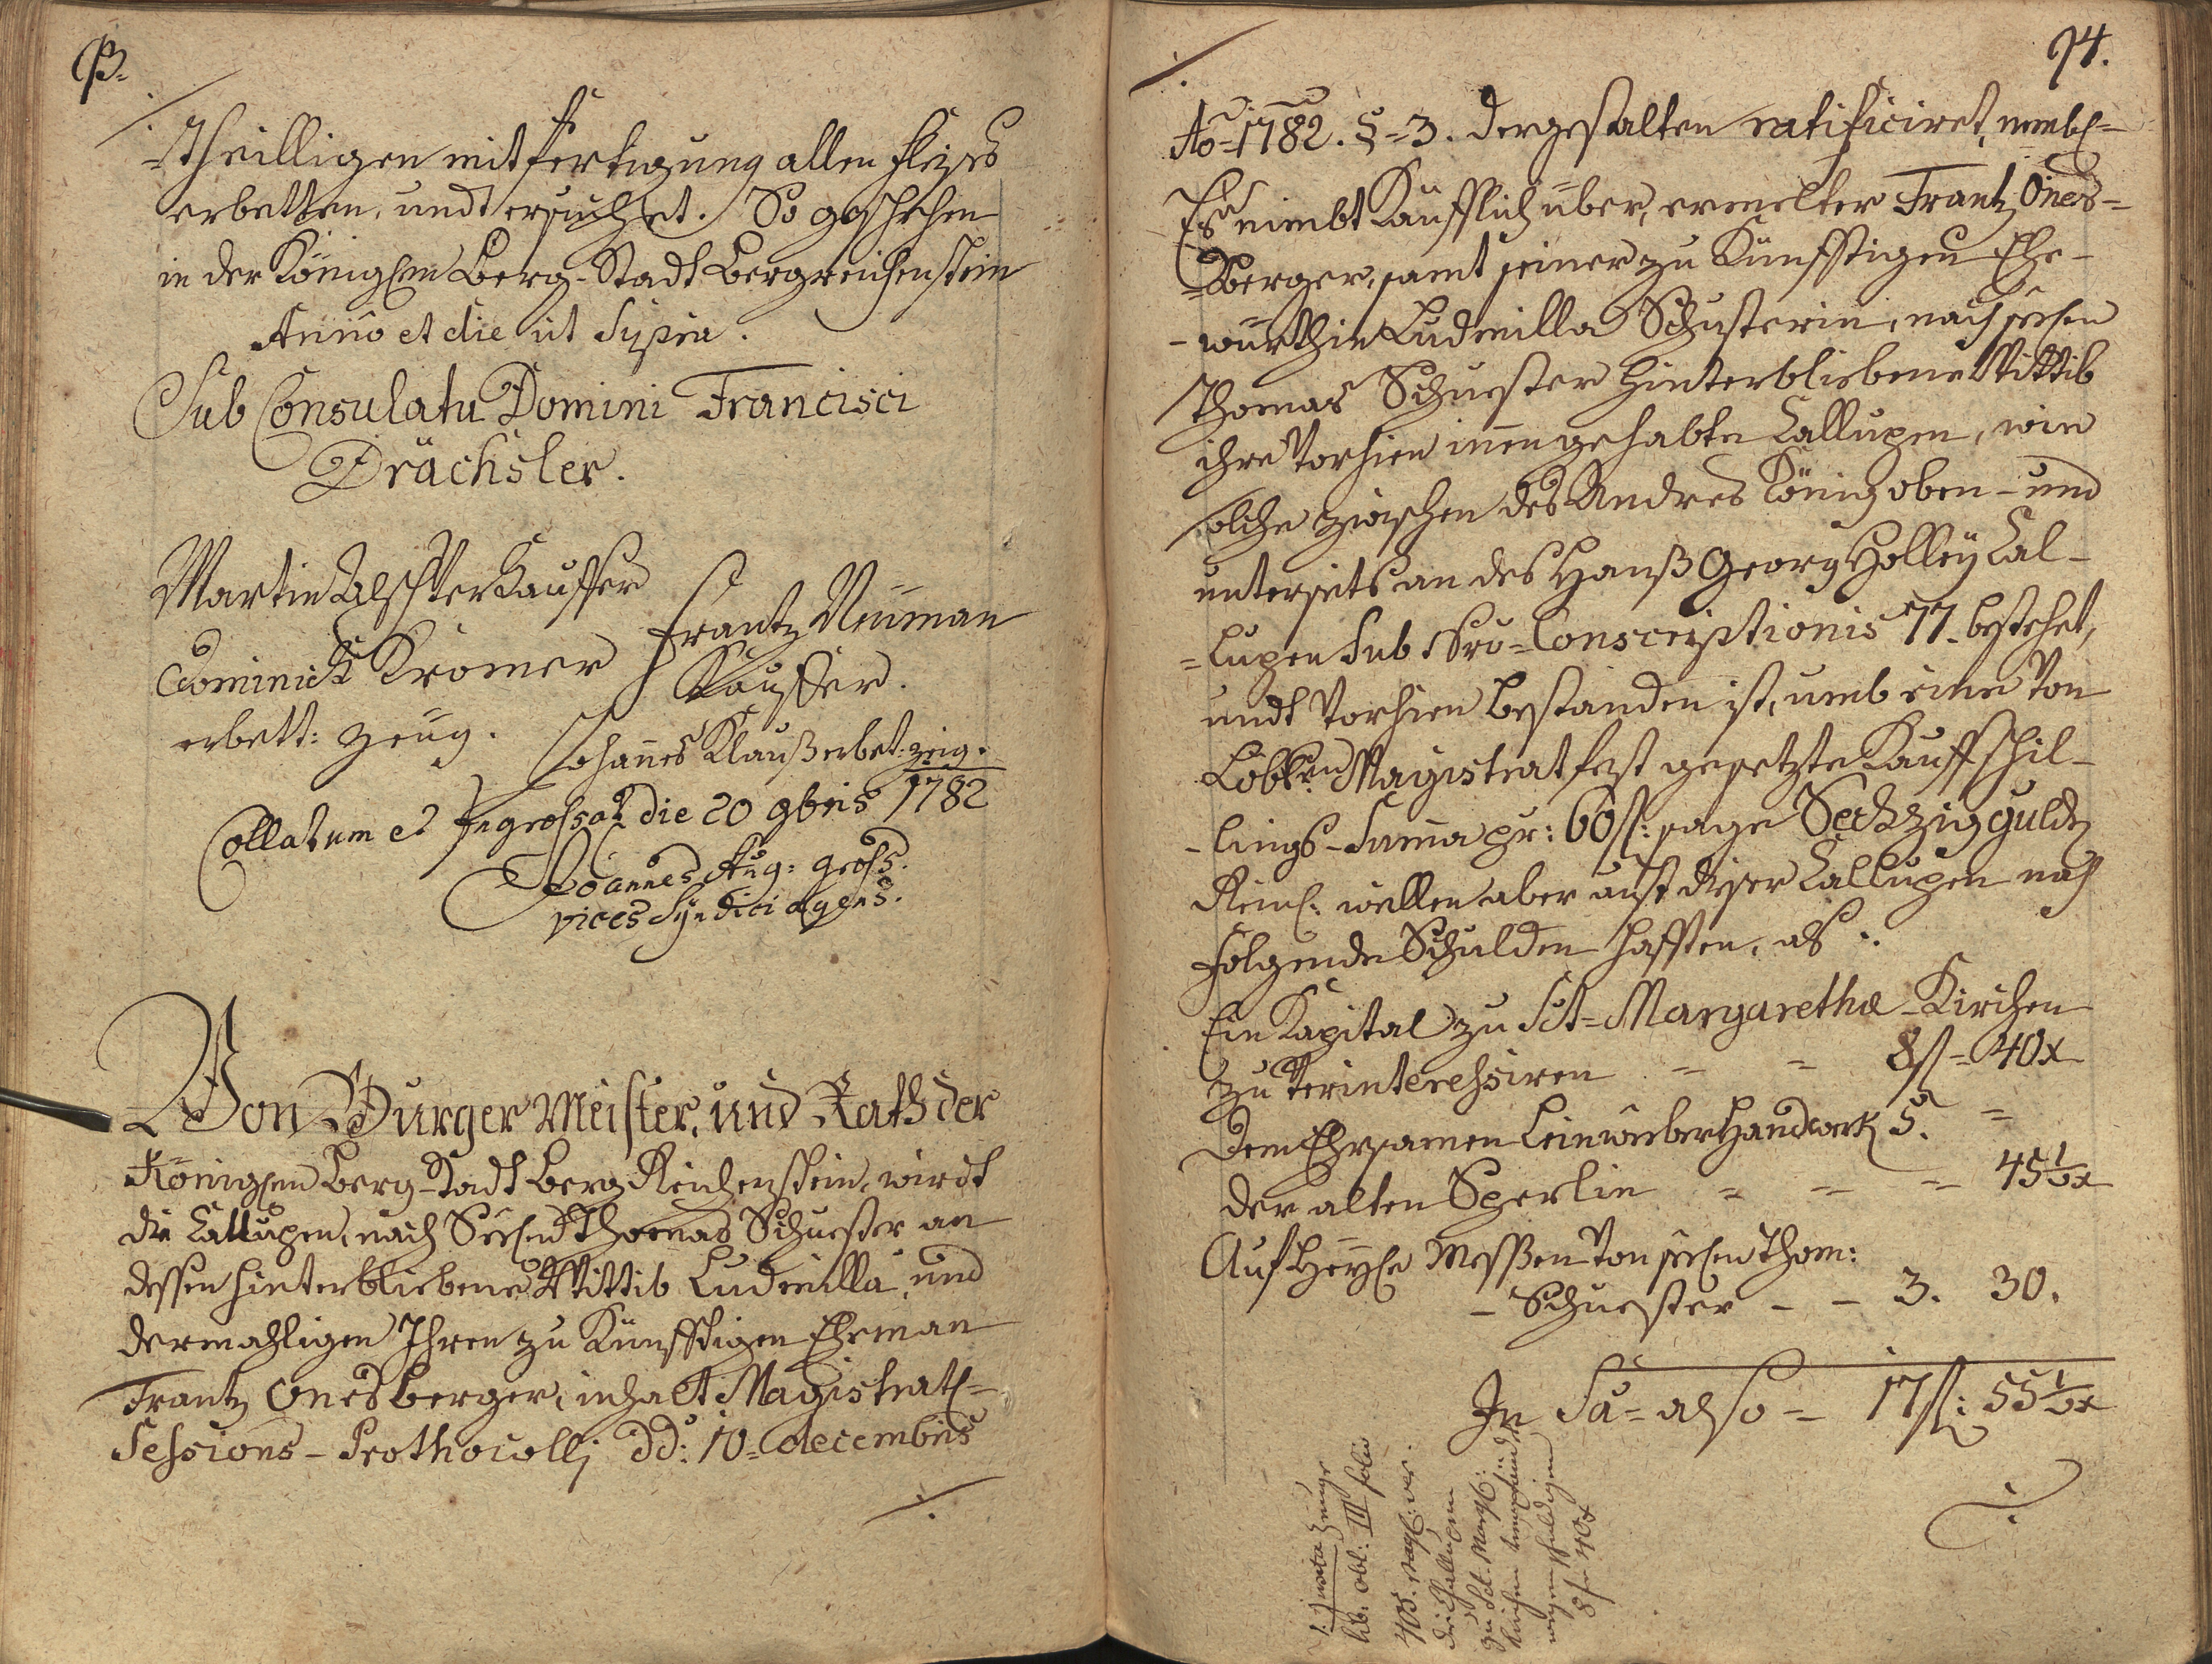 P.
-theilligen mitfertigung allen Fleyses
erbetten, undt ersuchet. So geschehen
in der Königlen Berg-Stadt Bergreichenstein
Anno et die ut Supra.
Sub Consulatu Domini Francisci
Drächsler.
Martin
Kauffer
Frantz Neuman
Dominick Kromer
Kauffer.
erbett: Zeüg.
Johannes Klauß erbet: zeig.
Collatum et Ingrossat die 20 9bris 1782
Joannes Aug: Gross.
vices Syndici agens.
Von Burger Meister, und Rath der
Königlen Berg-Stadt Berg Reichenstein, wirdt
die Callupen, nach Seelen Thomas Schuester an
dessen hinterbliebene Wittib Ludmilla, und
dermahligen Ihren zu Künfftigen Eheman
Frantz Onesberger, inhalt Magistratl-
Sessions-Prothocolli dd: 10= decembris
·/.
·/.
94.
Ao=1782. §=3. dergestalten ratificiret, nembl=
Es nimbt Kaufflich über, ermelter Frantz Ones=
=berger, samt seiner zu Künfftigen Ehe-
-würthin Ludmilla Schusterin, nach seelen
Thomas Schuester hinterbliebene Wittib
ihre Vorhien innengehabte Callupen, wie
solche zwischen des Andreas König oben- und
unterseits an des Hanß Georg Holleÿ Cal-
=lupen Sub Nro=Conscriptionis 77. bestehet,
undt Vorhien bestanden ist, umb eine Von
Löbl: Magistrat fest gesetzte Kauffschil-
-lings-Summa pr: 60 fl: sage Sechzig gulden
Reinl: wellen aber auf dieser Callupen nach
folgende Schulden hafften, als:
Ein Kapital zu Sct=Margaretha-Kirchen
zu Verinteressiren = = 8 fl= 40x
Dem Ehrsamen Leinweber Handwerk 5. =
der alten Sperlin = = = 45½x
Auf Heyle Messen Von seelen Thom:
-Schuester - - 3. 30.
In Sa= also = 17 fl: 55½x
·/.
lib: obl: III folio
405.
die Challupen
zu Sct. Margl:
Kirchen
wegen schuldigen
8 f 40 x